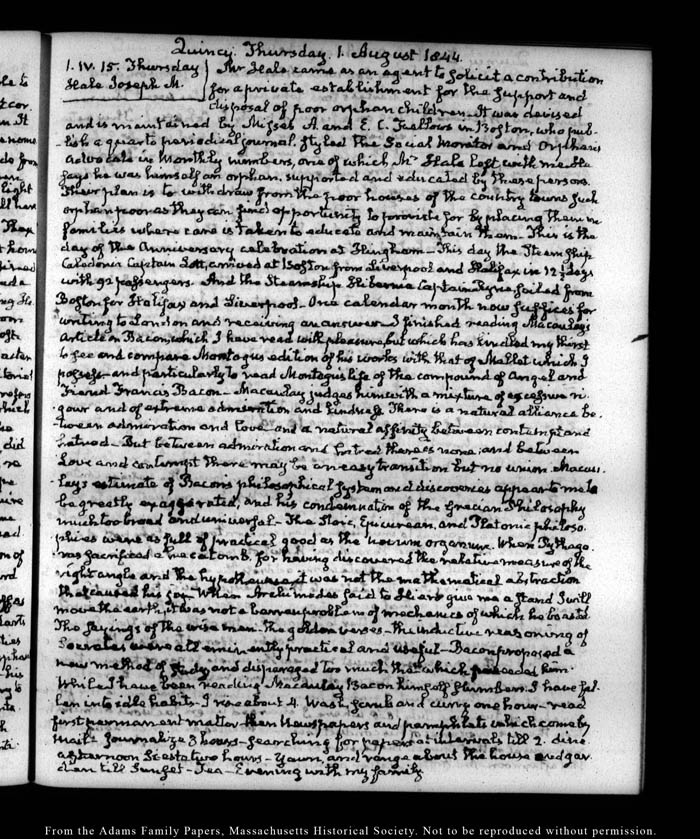 Quincy. Thursday. 1. August 1844.
1. IV. 15. Thursday
Hale Joseph M.
Mr Hale came as an agent to solicit a contribution
for a private establishment for the support and
disposal of poor orphan children. It was devised
and is maintained by Misses A. and E. C. Fellows in Boston, who pub-
lish a quarto periodical journal, styled the Social Monitor and Orphan's
Advocate in Monthly numbers, one of which Mr Hale left with me. He
says he was himself an orphan, supported and educated by these persons.
Their plan is to withdraw from the poor houses of the country towns such
orphan poor as they can find opportunity to provide for by placing them in
families where care is taken to educate and maintain them. This is the
day of the Anniversary celebration at Hingham- This day the Steam ship
Caledonia Captain Lott, arrived at Boston from Liverpool and Halifax in 12 ½ days
with 92 passengers. And the Steamship Hibernia Captain Ryrie sailed from
Boston for Halifax and Liverpool- One calendar month now suffices for
writing to London and receiving an answer. I finished reading Macaulay's
Article on Bacon, which I have read with pleasure, but which has kindled my thirst
to see and compare Montagu's edition of his works with that of Mallet which I
possess- and particularly to read Montagu's life of the compound of Angel and
Fiend Francis Bacon- Macaulay judges him with a mixture of excessive ri-
gour and of extreme admiration and kindness. There is a natural alliance be-
tween admiration and love- and a natural affinity between contempt and
hatred- But between admiration and hatred there is none; and between
Love and contempt there may be an easy transition but no union. Macau-
lay's estimate of Bacon's philosophical system and discoveries appears to me to
be greatly exaggerated, and his condemnation of the Grecian Philosophy
much too broad and universal- The Stoic, Epicurean, and Platonic philoso-
phies were as full of practical good as the novum organum. When Pythago-
ras sacrificed a hecatomb, for having discovered the relative measure of the
right angle and the hypothenuse, it was not the mathematical abstraction
that caused his joy- When Archimedes said to Hiero give me a stand I will
move the earth, it was not a barren problem of mechanics of which he boasted
The sayings of the wise men- the golden verses- the inductive reasoning of
Socrates were all eminently practical and useful- Bacon proposed a
new method of study and disparaged too much that which preceded him.
While I have been reading Macaulay Bacon himself slumbers. I have fal-
len into idle habits- I rise about 4. Wash, scrub and curry one hour- read
first permanent matter then Newspapers and pamphlets which come by
mail- Journalize 3 hours- Searching for papers at intervals till 2. dine
afternoon Siesta two hours- Yawn, and range about the house and gar-
den till Sunset- Tea- Evening with my family
From the Adams Family Papers, Massachusetts Historical Society. Not to be reproduced without permission.